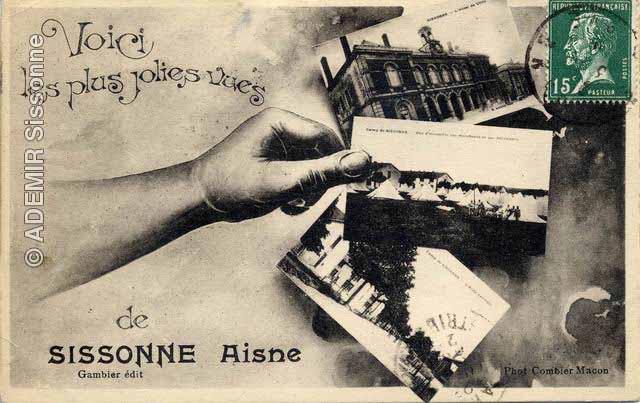 Voici
les plus jolies vues
de
SISSONNE Aisne
Gambier édit
Phot Combier Macon
SISSONNE - L'Hôtel de Ville
Camp de SISSONNE
RÉPUBLIQUE FRANÇAISE
15c
POSTES
PASTEUR
© ADEMIR Sissonne